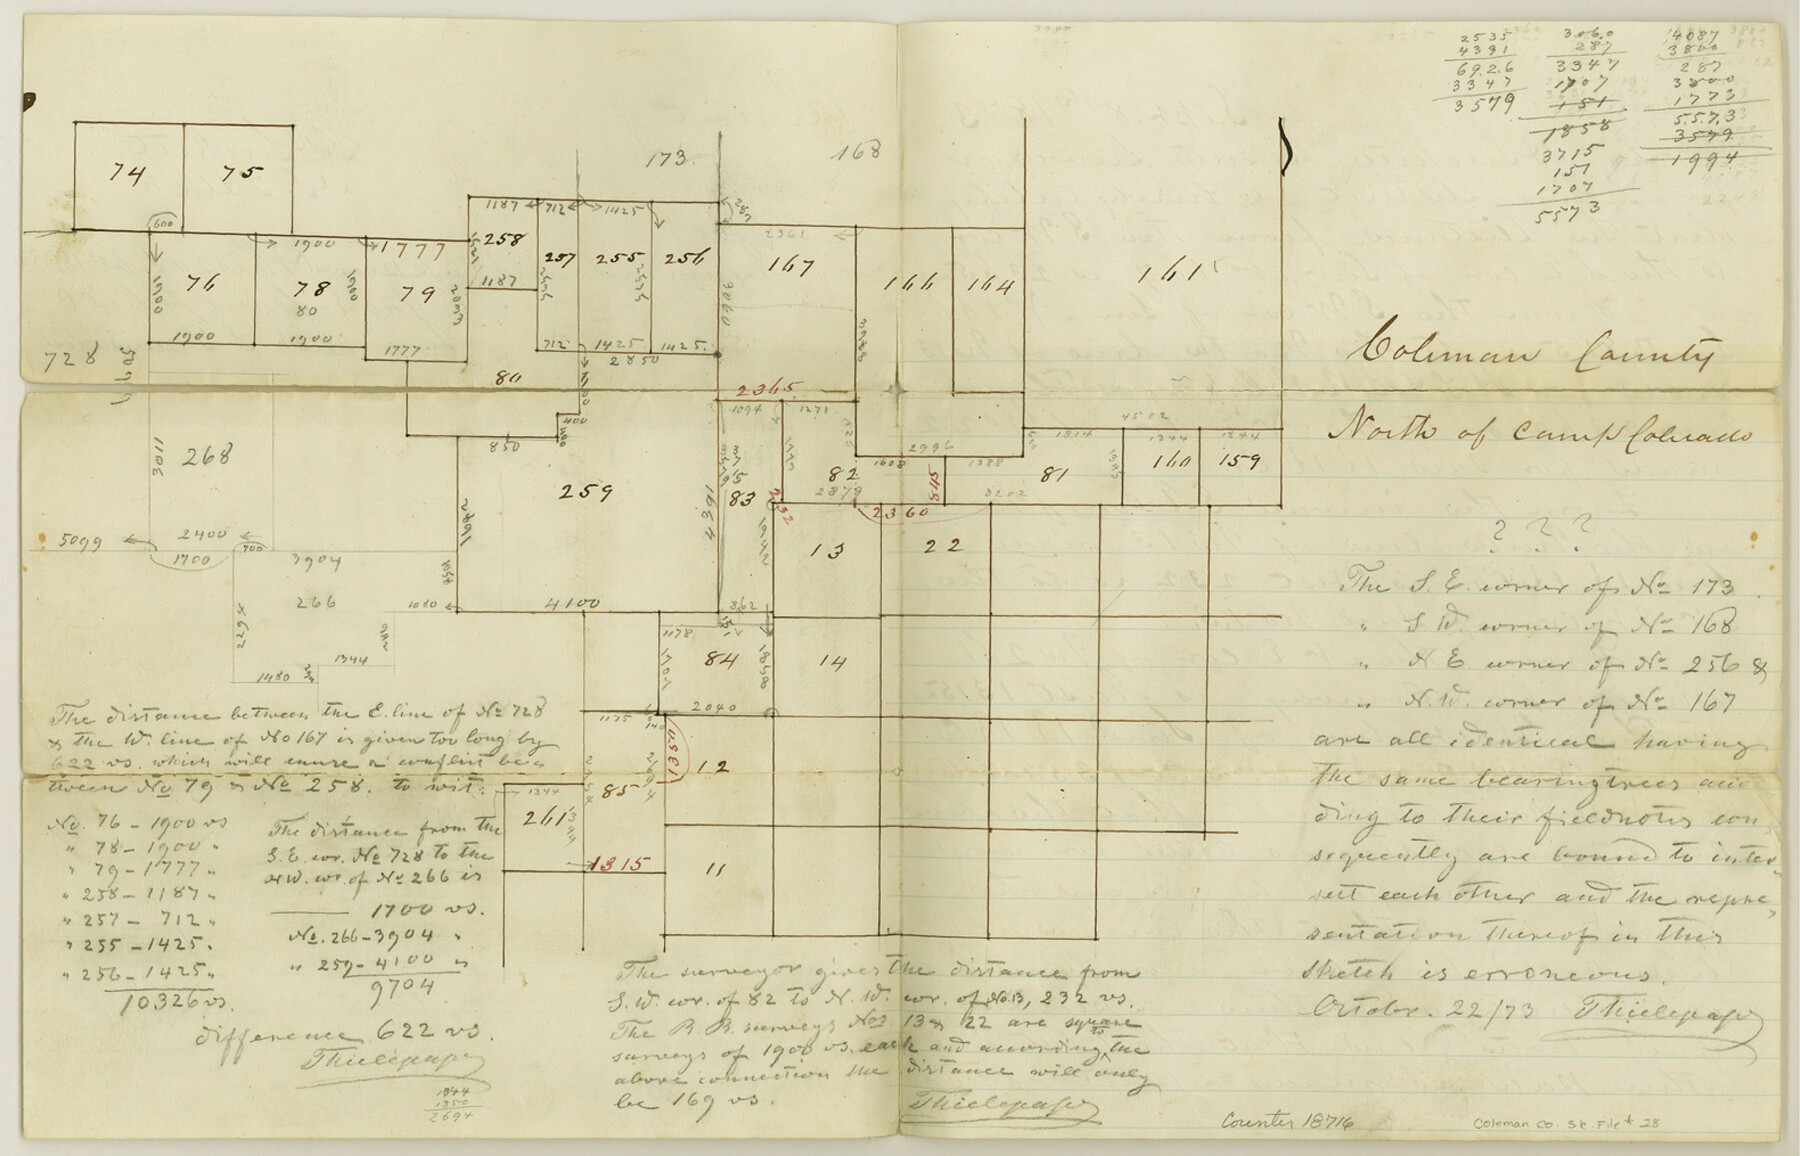 2535
4391
6926
3347
3579
3060
287
3347
1707
151
1858
3715
151
1707
5573
14087
3800
287
3800
1773
5573
3579
1994
173
168
74
75
600
1900
1777
1187
712
1425
287
2361
258
257
255
256
167
166
164
161
76
78
80
79
1900
1900
1900
1900
1777
1187
2535
2535
3060
712
1425
1425
2850
728
80
2365
1094
1271
400
850
Coleman County
North of Camp Colorado
4502
1814
1344
1344
2996
1608
1388
82
845
81
160
159
2879
3202
2360
232
268
3011
259
4391
83
1942
13
22
5099
2400
1700
700
3904
266
1080
4100
862
151
1178
84
1707
1858
14
1344
1480
2040
1175
140
1350
12
85
1344
261
1315
11
The distance between the E. line of No 728
& the W. line of No 167 is given too long by
622 vs. which will cause a conflict be=
tween No 79 & No 258. to wit:
No. 76 - 1900 vs
" 78 - 1900 "
" 79 - 1777 "
" 258 - 1187 "
" 257 - 712 "
" 255 - 1425 "
" 256 - 1425 "
10326 vs.
The distance from the
S. E. cor. No 728 to the
N.W. cor. of No 266 is
1700 vs.
No. 266 - 3904 "
" 259 - 4100 "
9704
difference 622 vs.
Thielepape
1344
1350
2694
The surveyor gives the distance from
S. W. cor. of 82 to N. W. cor. of No. 13, 232 vs.
The R. R. surveys Nos 13 & 22 are square
surveys of 1900 vs. each and according to the
above connection the distance will only
be 169 vs.
Thielepape
? ? ?
The S. E. corner of No 173
" S W. corner of No 168
" N E corner of No 256 &
" N. W. corner of No 167
are all identical having
the same bearingtrees accor
ding to their fieldnotes con
sequently are bound to inter
sect each other and the repre
sentation thereof in this
sketch is erroneous.
October. 22/73 Thielepape
Counter 18716
Coleman Co. Sk. File # 28